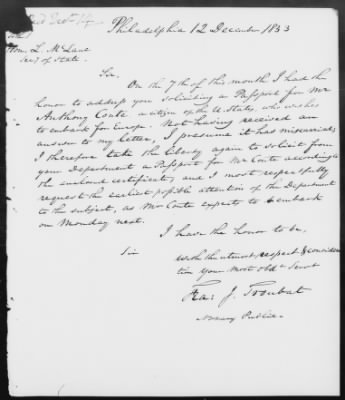 Philadelphia 12 December 1833
Hon. L. McLane
Secy of State.
Sir,
On the 7th of this month I had the
honor to address you soliciting a Passport for Mr
Anthony Conte a citizen of the U. States, who wishes
to embark for Europe. Not having received an
answer to my letter, I presume it has miscarried;
I therefore take the liberty again to solicit from
your Department a Passport for Mr Conte according to
the enclosed certificate, and I most respectfully
request the earliest possible attention of the Department
to the subject, as Mr Conte expects to embark
on Monday next.
I have the honor to be,
Sir
with the utmost respect & considera-
tion your most obdt Servt
Fra: J. Troubat
Notary Public.